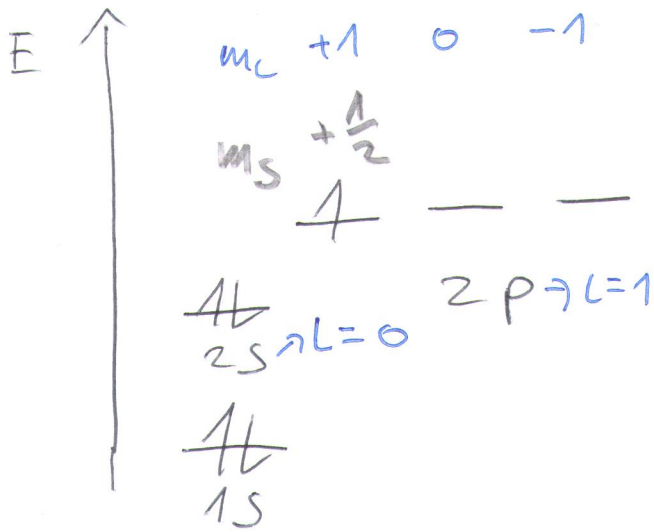 E
mL +1 0 -1
ms +1/2
2p → L=1
2s → L=0
1s